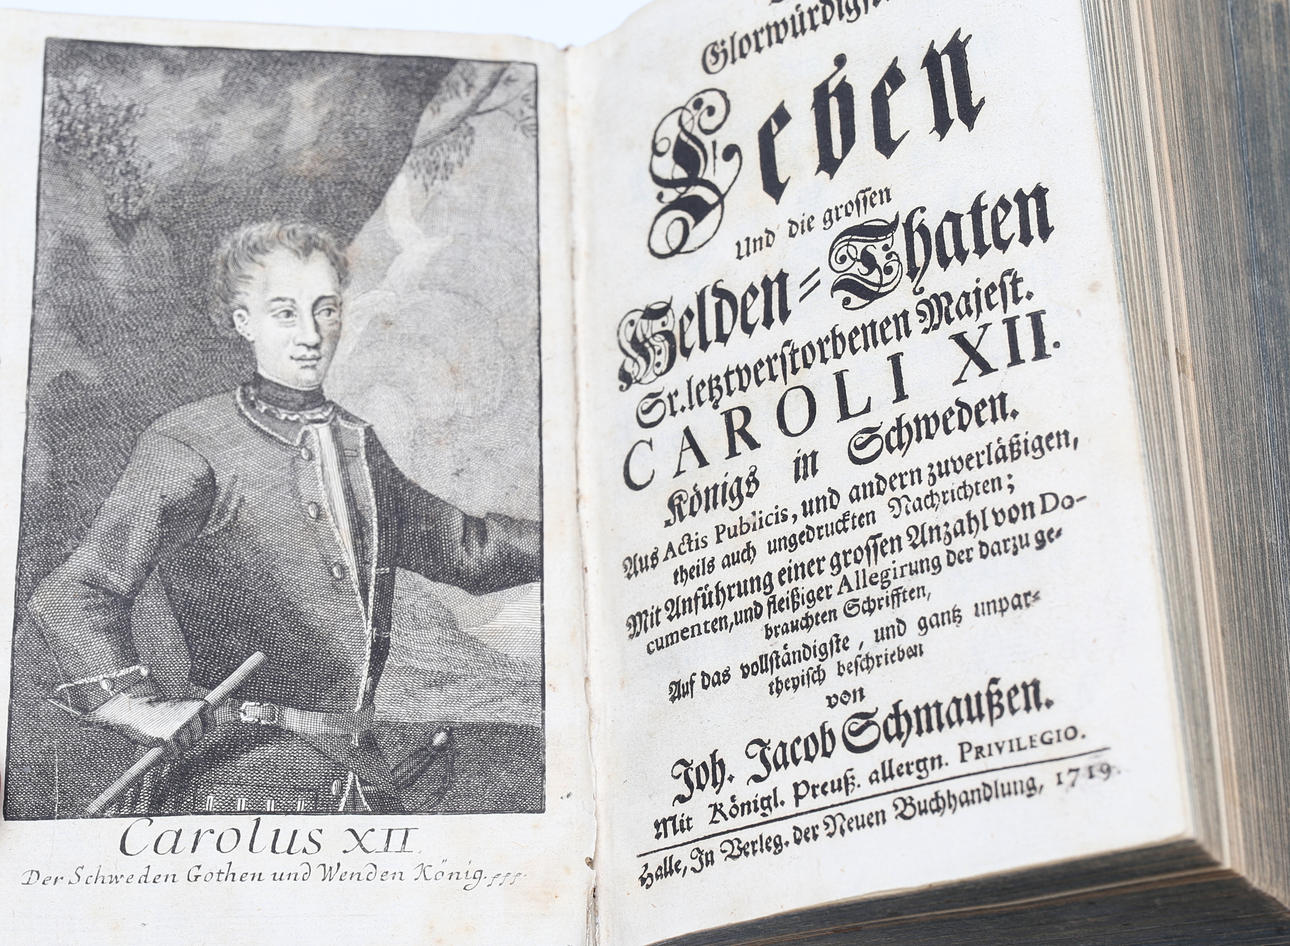 Carolus XII.
Der Schweden Gothen und Wenden König.
Glorwürdigst
Leben
Und die grossen
Helden-Thaten
Sr. letztverstorbenen Majest.
CAROLI XII.
Königs in Schweden.
Aus Actis Publicis, und andern zuverläßigen,
theils auch ungedruckten Nachrichten;
Mit Anführung einer grossen Anzahl von Do-
cumenten, und fleißiger Allegirung der darzu ge-
brauchten Schrifften,
Auf das vollständigste, und gantz unpar-
theyisch beschrieben
von
Joh. Jacob Schmaußen.
Mit Königl. Preuß. allergn. PRIVILEGIO.
Halle, In Verleg. der Neuen Buchhandlung, 1719.